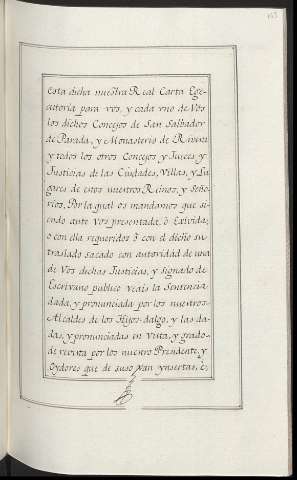 Esta dicha nuestra Real Carta Exe-
cutoria para vos, y cada vno de Vos
los dichos Concejos de San Salbador
de Parada, y Monasterio de
y todos los otros Concejos y Jueces y
Justicias de las Ciudades, Villas, y Lu
gares de estos nuestros Reinos, y Seño-
rios, Por la qual os mandamos que si-
endo ante vos presentada, ô Exivida,
o con ella requeridos ô con el dicho su
traslado sacado con autoridad de una
de Vos dichas Justicias, y signado de
Escrivano publico veais la Sentencia
dada, y pronunciada por los nuestros
Alcaldes de los Hijos-dalgo, y las da-
das, y pronunciadas en Vista, y grado
de revista por los nuestro Presidente, y
Oydores que de suso van ynsertas, è,